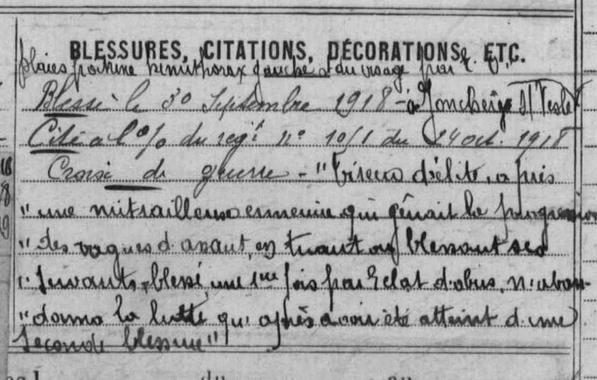 BLESSURES, CITATIONS, DÉCORATIONS, ETC.
plaies poitrine hemithorax gauche & du visage par E. O.
Blessé le 30 Septembre 1918 - à Jonchery s/ Vesle
Cité à l'o/o du régt n° 10/1 du 24 oct. 1918
Croix de guerre - "Tireur d'élite, a pris
"une mitrailleuse ennemie qui gênait la progression
"des vagues d'assaut, en tuant ou blessant ses
"servants, blessé une 1re fois par éclat d'obus, n'aban-
"donna la lutte qu'après avoir été atteint d'une
seconde blessure"
du
au